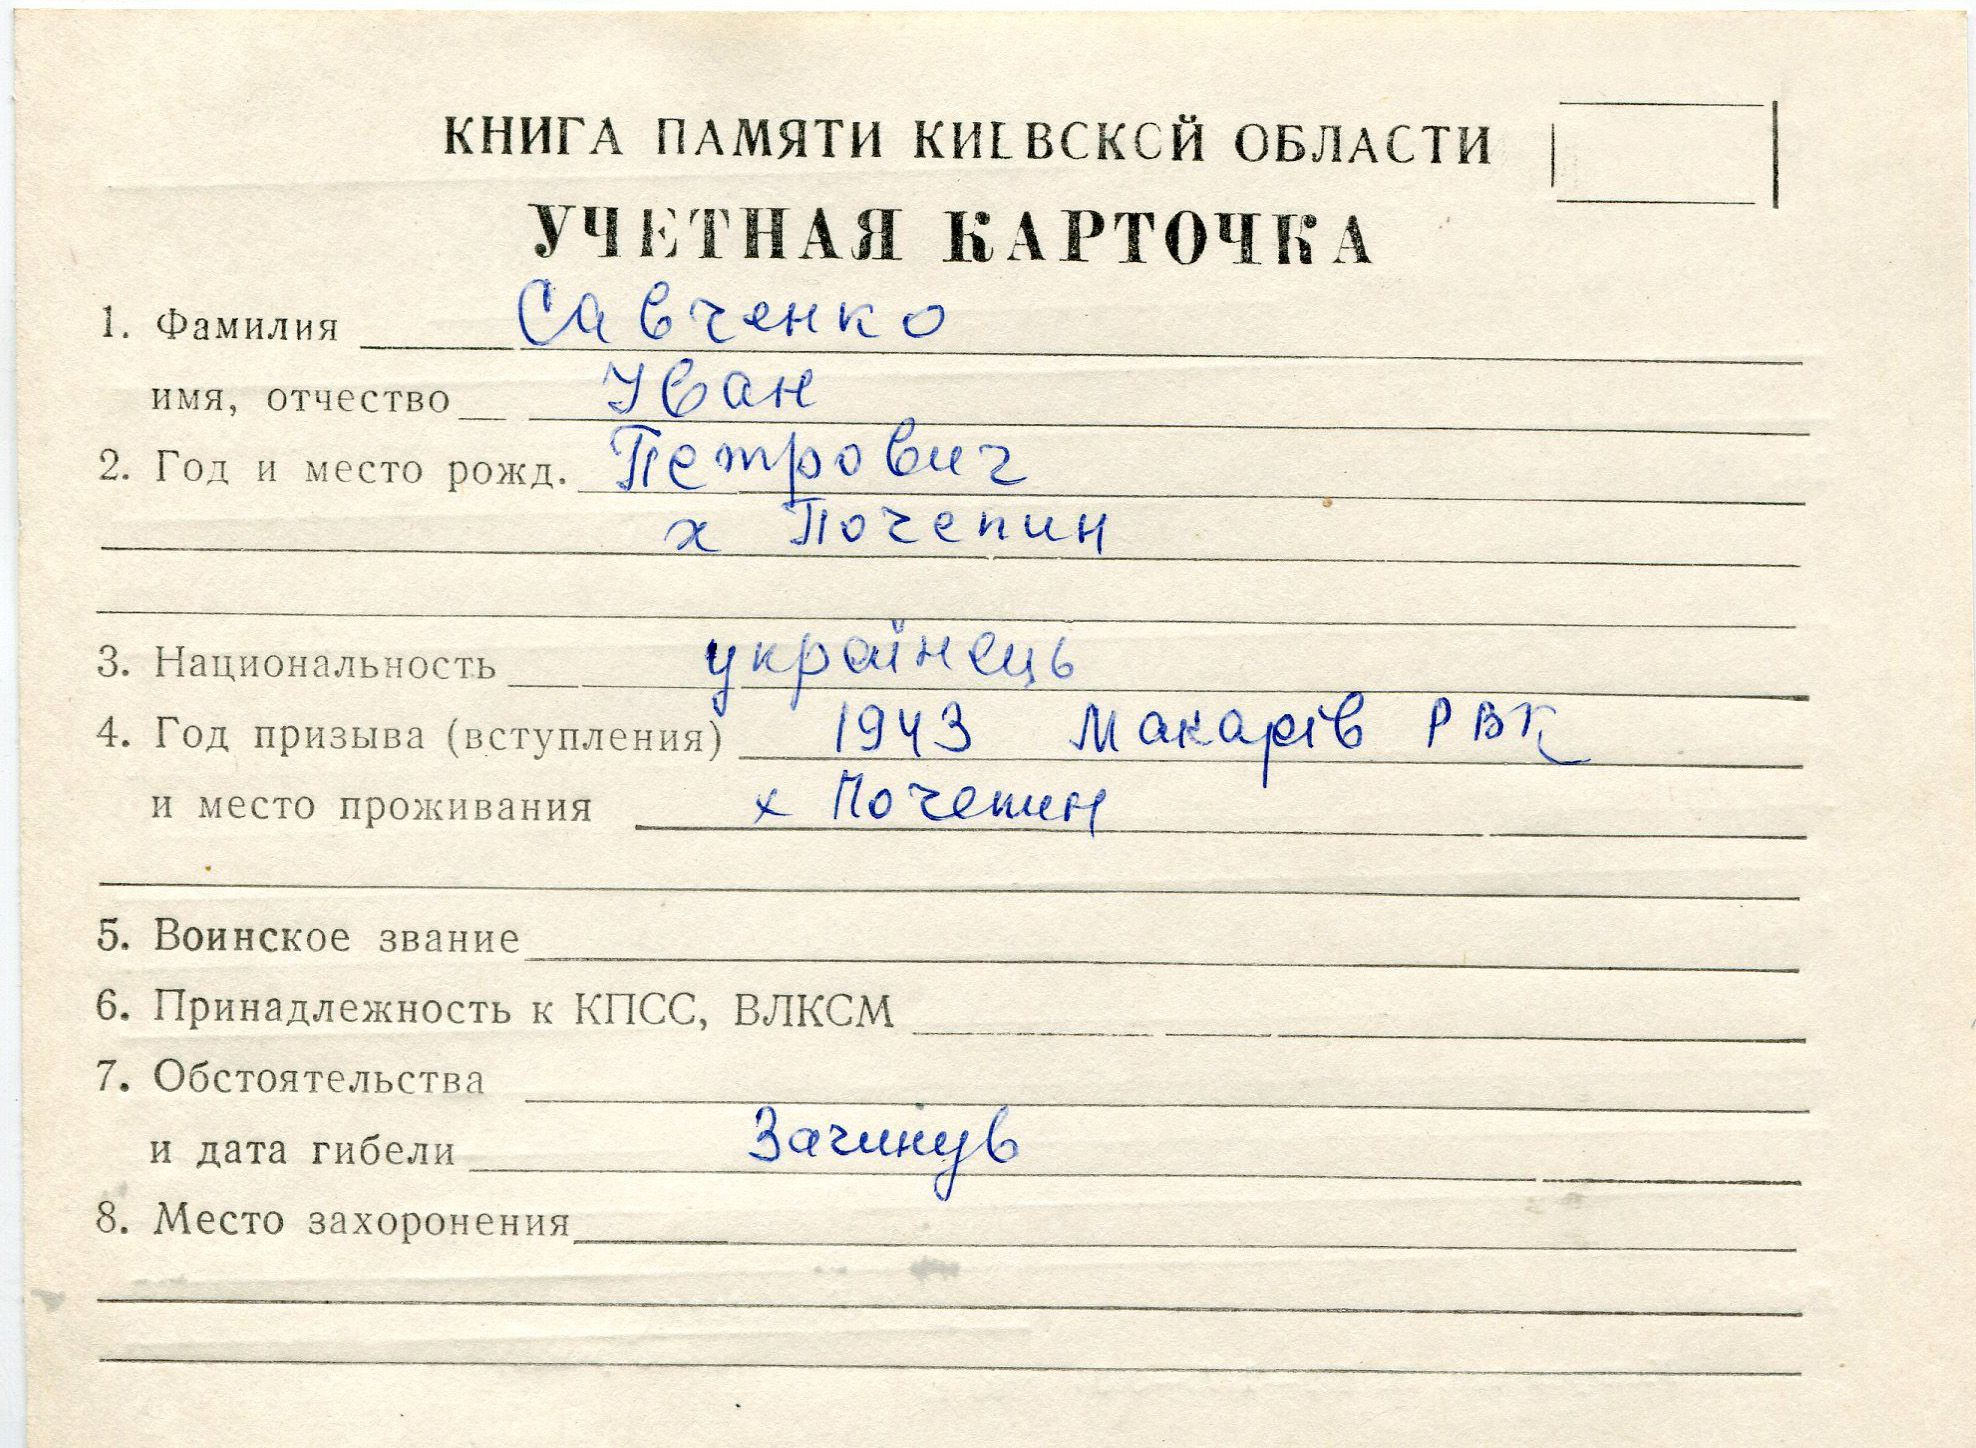 КНИГА ПАМЯТИ КИЕВСКОЙ ОБЛАСТИ
УЧЕТНАЯ КАРТОЧКА
1. Фамилия Савченко
имя, отчество Іван
2. Год и место рожд. Петрович
х Почепин
3. Национальность українець
4. Год призыва (вступления) 1943 Макарів РВК
и место проживания х Почепин
5. Воинское звание
6. Принадлежность к КПСС, ВЛКСМ
7. Обстоятельства
и дата гибели Загинув
8. Место захоронения